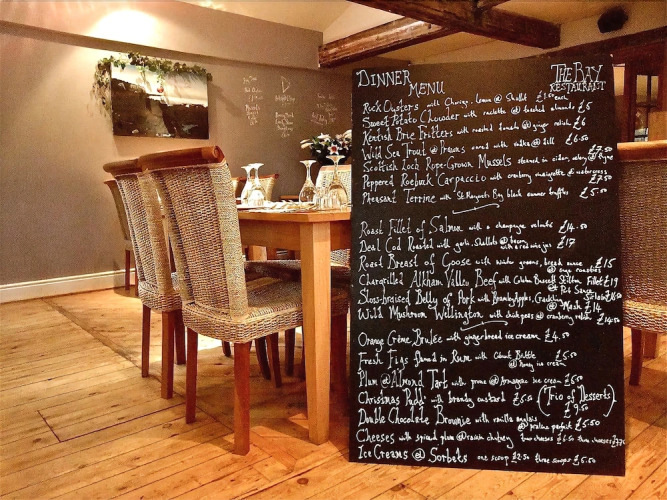 DINNER MENU
THE BAY RESTAURANT
Rock Oysters with Chorizo, Lemon @ Shallot £1.50 each
Sweet Potato Chowder with raclette @ toasted almonds £5
Kentish Brie Fritters with roasted tomato @ ginger relish £6
Wild Sea Trout @ Prawns cured with vodka @ dill £6.50
Scottish Loch Rope-Grown Mussels steamed in cider, celery @ thyme £7.50
Peppered Roebuck Carpaccio with cranberry vinaigrette @ watercress £7.50
Pheasant Terrine with St. Margarets Bay black summer truffles £5.50
Roast Fillet of Salmon with a champagne velouté £14.50
Deal Cod Roasted with garlic, shallots @ bacon with a red wine jus £17
Roast Breast of Goose with winter greens, bread sauce @ roasties £15
Chargrilled Alkham Valley Beef with Colston Bassett Stilton Fillet £19
@ Port Sauce Sirloin £16.50
Slow-braised Belly of Pork with Bramley Apples, Crackling @ Mash £14
Wild Mushroom Wellington with chick peas @ cranberry relish £14.50
Orange Crème Brulee with gingerbread ice cream £4.50
Fresh Figs flamed in Rum with Cobnut Brittle @ honey ice cream £5.50
Plum @ Almond Tart with prune @ Armagnac ice cream £5.50
Christmas Pudd' with brandy custard £5.50
(Trio of Desserts) £9.50
Double Chocolate Brownie with vanilla anglais @ praline parfait £5.50
Cheeses with spiced plum @ raisin chutney two cheeses £6.50 three cheeses £7.75
Ice Creams @ Sorbets one scoop £2.50 three scoops £5.50